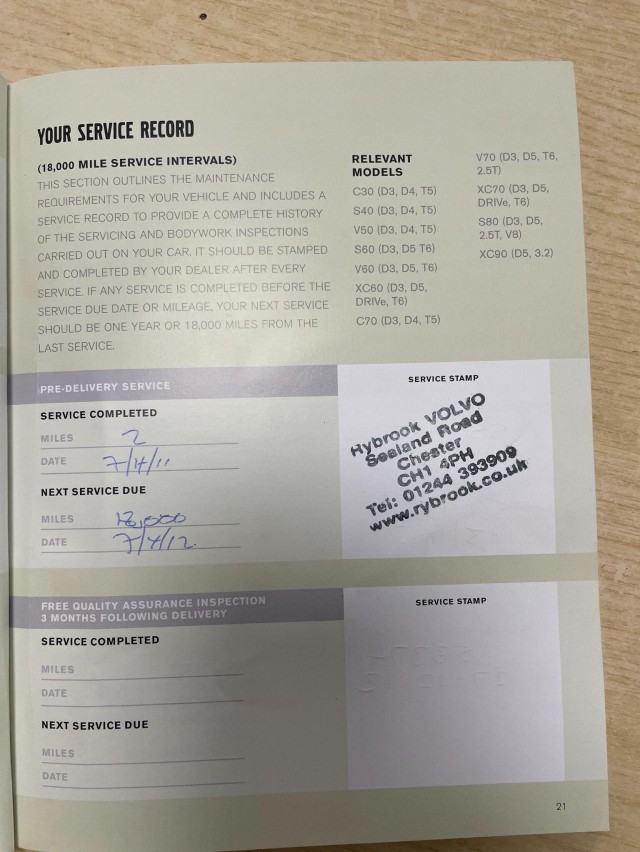 YOUR SERVICE RECORD
(18,000 MILE SERVICE INTERVALS)
THIS SECTION OUTLINES THE MAINTENANCE
REQUIREMENTS FOR YOUR VEHICLE AND INCLUDES A
SERVICE RECORD TO PROVIDE A COMPLETE HISTORY
OF THE SERVICING AND BODYWORK INSPECTIONS
CARRIED OUT ON YOUR CAR. IT SHOULD BE STAMPED
AND COMPLETED BY YOUR DEALER AFTER EVERY
SERVICE. IF ANY SERVICE IS COMPLETED BEFORE THE
SERVICE DUE DATE OR MILEAGE, YOUR NEXT SERVICE
SHOULD BE ONE YEAR OR 18,000 MILES FROM THE
LAST SERVICE.
RELEVANT
MODELS
C30 (D3, D4, T5)
S40 (D3, D4, T5)
V50 (D3, D4, T5)
S60 (D3, D5 T6)
V60 (D3, D5, T6)
XC60 (D3, D5,
DRIVe, T6)
C70 (D3, D4, T5)
V70 (D3, D5, T6,
2.5T)
XC70 (D3, D5,
DRIVe, T6)
S80 (D3, D5,
2.5T, V8)
XC90 (D5, 3.2)
PRE-DELIVERY SERVICE
SERVICE COMPLETED
MILES 2
DATE 7/4/11
NEXT SERVICE DUE
MILES 18,000
DATE 7/4/12.
SERVICE STAMP
Rybrook VOLVO
Sealand Road
Chester
CH1 4PH
Tel: 01244 393909
www.rybrook.co.uk
FREE QUALITY ASSURANCE INSPECTION
3 MONTHS FOLLOWING DELIVERY
SERVICE COMPLETED
MILES
DATE
NEXT SERVICE DUE
MILES
DATE
SERVICE STAMP
21